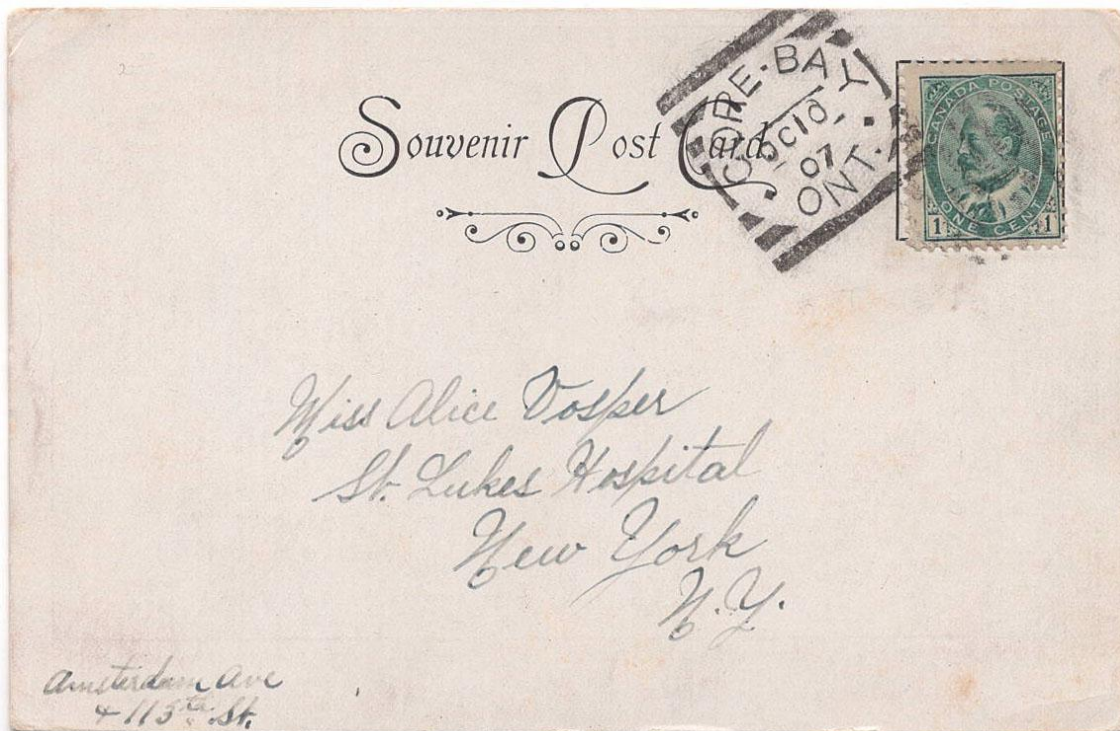 Souvenir Post Card.
GORE·BAY
OC 10
07
ONT.
CANADA POSTAGE
1 ONE CENT 1
Miss Alice Vosper
St. Lukes Hospital
New York
N.Y.
Amsterdam Ave
+ 113th St.